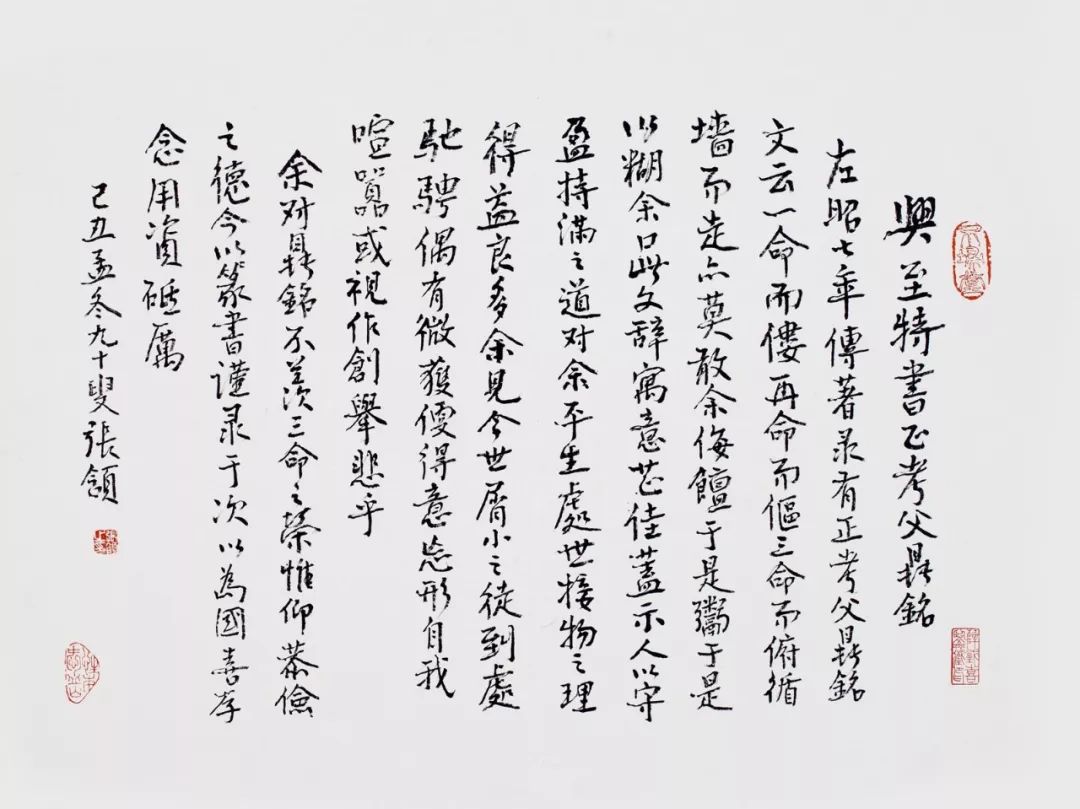 興至特書正考父鼎銘
左昭七年傳著录有正考父鼎銘
文云一命而僂再命而傴三命而俯循
墙而走亦莫敢余侮饘于是鬻于是
以糊余口此文辞寓意甚佳蓋示人以守
盈持滿之道对余平生處世接物之理
得益良多余見今世屑小之徒到處
馳騁偶有微獲便得意忘形自我
喧嚣或視作創舉悲乎
余对鼎銘不羡三命之榮惟仰恭儉
之德今以篆書谨录于次以為國喜存
念用資砥厲
己丑孟冬九十叟張頷